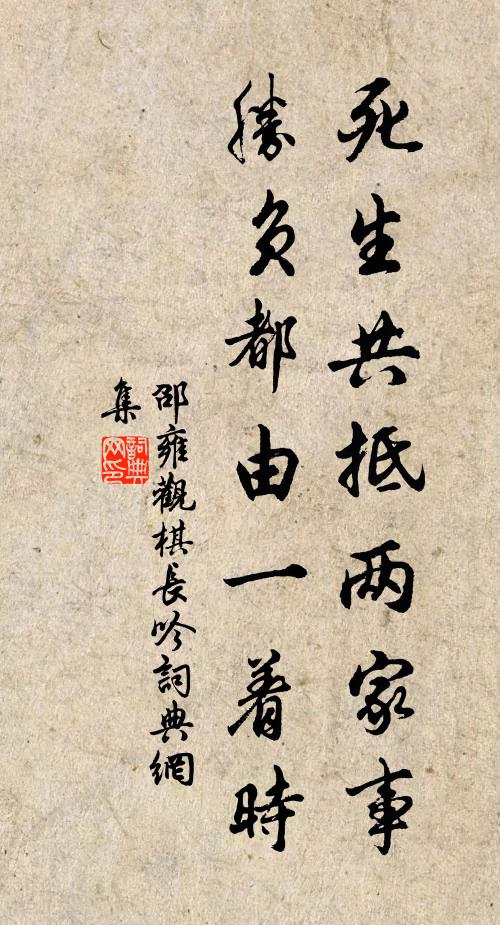 死生共抵两家事
勝负都由一着時
邵雍觀棋長吟詞典網
集
詞典
网印